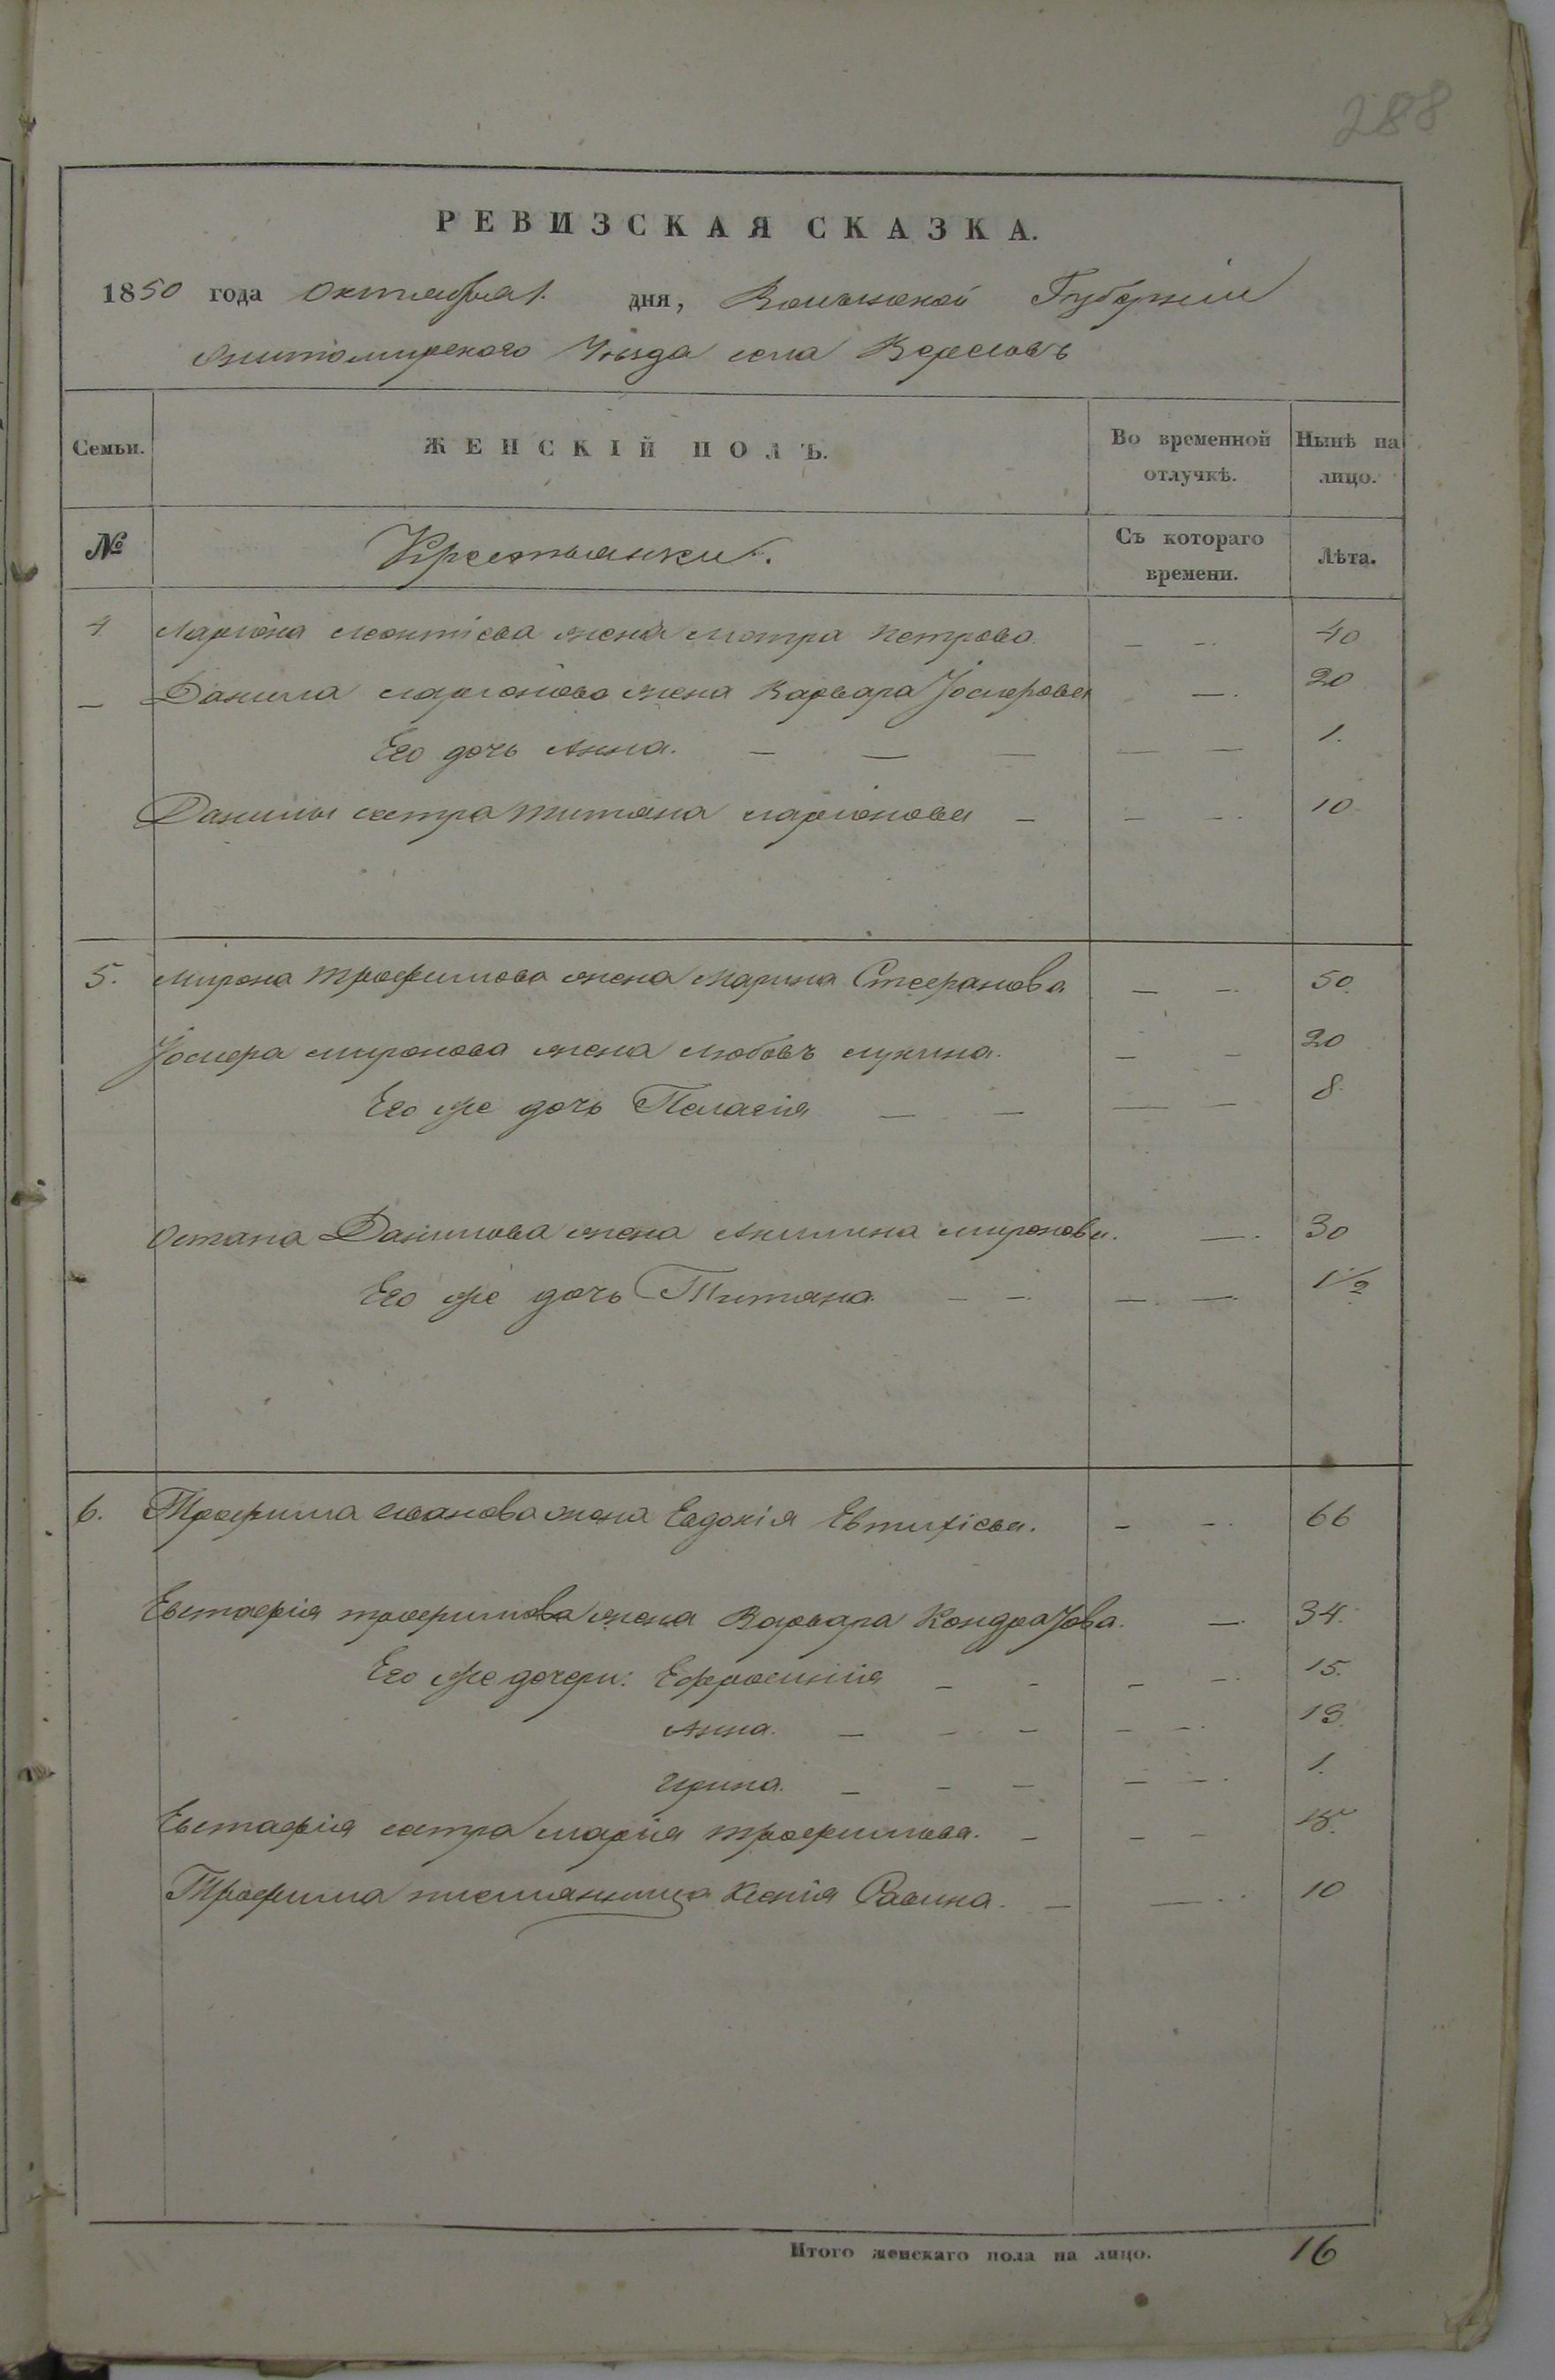 288
РЕВИЗСКАЯ СКАЗКА.
1850 года Октября 1. дня, Волынской Губернiи
Житомирского Уѣзда села Вересовъ
Семьи. ЖЕНСКІЙ ПОЛЪ. Во временной отлучкѣ. Нынѣ на лицо.
№ Крестьянки. Съ котораго времени. Лѣта.
4 Ларiона Леонтiева жена Мотра Петрова — — 40
— Данила Ларiонова жена Варвара Іосифова — 20
Его дочь Анна. — — — — — 1.
Данилы сестра Титяна Ларiонова — — — 10
5. Мирона Трофимова жена Марина Стефанова — — 50.
Іосифа Миронова жена Любовъ Лукина. — — 20
Его же дочь Пелагiя — — — — 8.
Остапа Данилова жена Акилина Миронова. — 30
Его же дочь Титяна. — — — — 1½
6. Трофима Иванова жена Евдокiя Евтихiева. — — 66
Евстафiя Трофимова жена Варвара Кондратова. — 34.
Его же дочери: Ефросинiя — — — — 15.
Анна. — — — — — 13.
Ирина. — — — — — 1.
Евстафiя сестра Марiя Трофимова. — — — 18.
Трофима племянница Ксенiя Савина. — — 10
Итого женскаго пола на лицо. 16